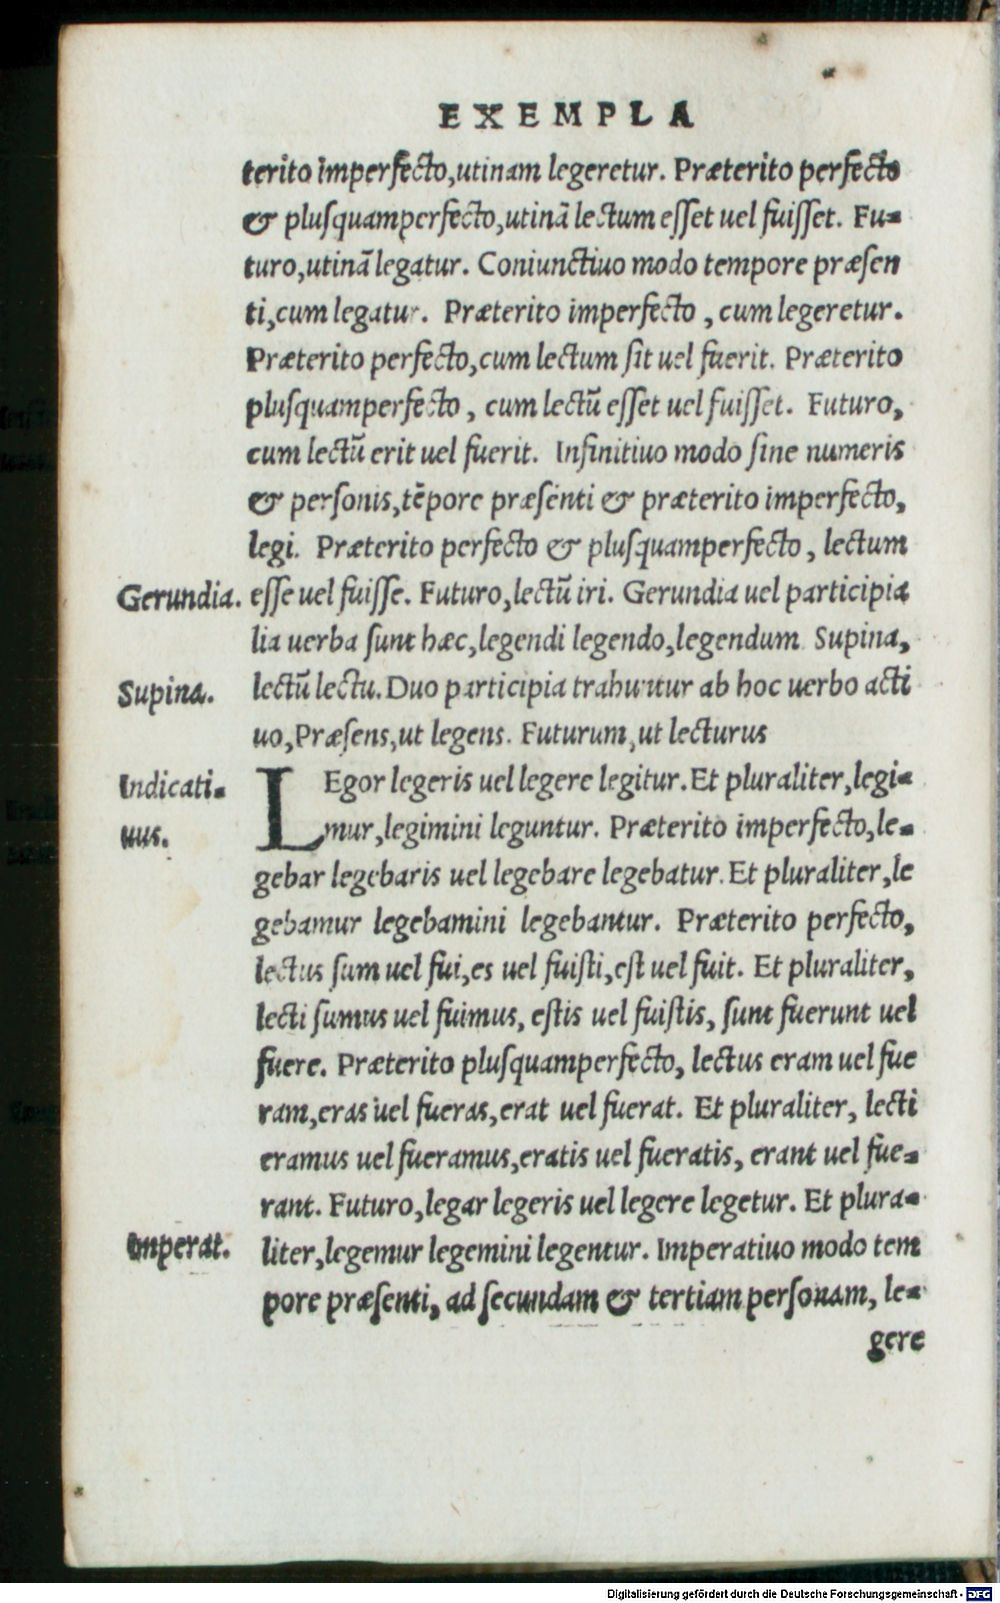 EXEMPLA
terito imperfecto,utinam legeretur. Præterito perfecto
& pluſquamperfecto,utinā lectum eſſet uel fuiſſet. Fu-
turo,utinā legatur. Coniunctiuo modo tempore præſen
ti,cum legatur. Præterito imperfecto, cum legeretur.
Præterito perfecto,cum lectum ſit uel fuerit. Præterito
pluſquamperfecto, cum lectū eſſet uel fuiſſet. Futuro,
cum lectū erit uel fuerit. Infinitiuo modo ſine numeris
& perſonis,tēpore præſenti & præterito imperfecto,
legi. Præterito perfecto & pluſquamperfecto, lectum
Gerundia. eſſe uel fuiſſe. Futuro,lectū iri. Gerundia uel participia
lia uerba ſunt hæc,legendi legendo,legendum Supina,
Supina. lectū lectu. Duo participia trahuntur ab hoc uerbo acti
uo,Præſens,ut legens. Futurum,ut lecturus
Indicati- LEgor legeris uel legere legitur. Et pluraliter,legi-
uus. mur,legimini leguntur. Præterito imperfecto,le-
gebar legebaris uel legebare legebatur. Et pluraliter,le
gebamur legebamini legebantur. Præterito perfecto,
lectus ſum uel fui,es uel fuiſti,eſt uel fuit. Et pluraliter,
lecti ſumus uel fuimus, eſtis uel fuiſtis, ſunt fuerunt uel
fuere. Præterito pluſquamperfecto, lectus eram uel fue
ram,eras uel fueras,erat uel fuerat. Et pluraliter, lecti
eramus uel fueramus,eratis uel fueratis, erant uel fue-
rant. Futuro,legar legeris uel legere legetur. Et plura-
Imperat. liter,legemur legemini legentur. Imperatiuo modo tem
pore præſenti, ad ſecundam & tertiam perſonam, le-
gere
Digitalisierung gefördert durch die Deutsche Forschungsgemeinschaft - DFG